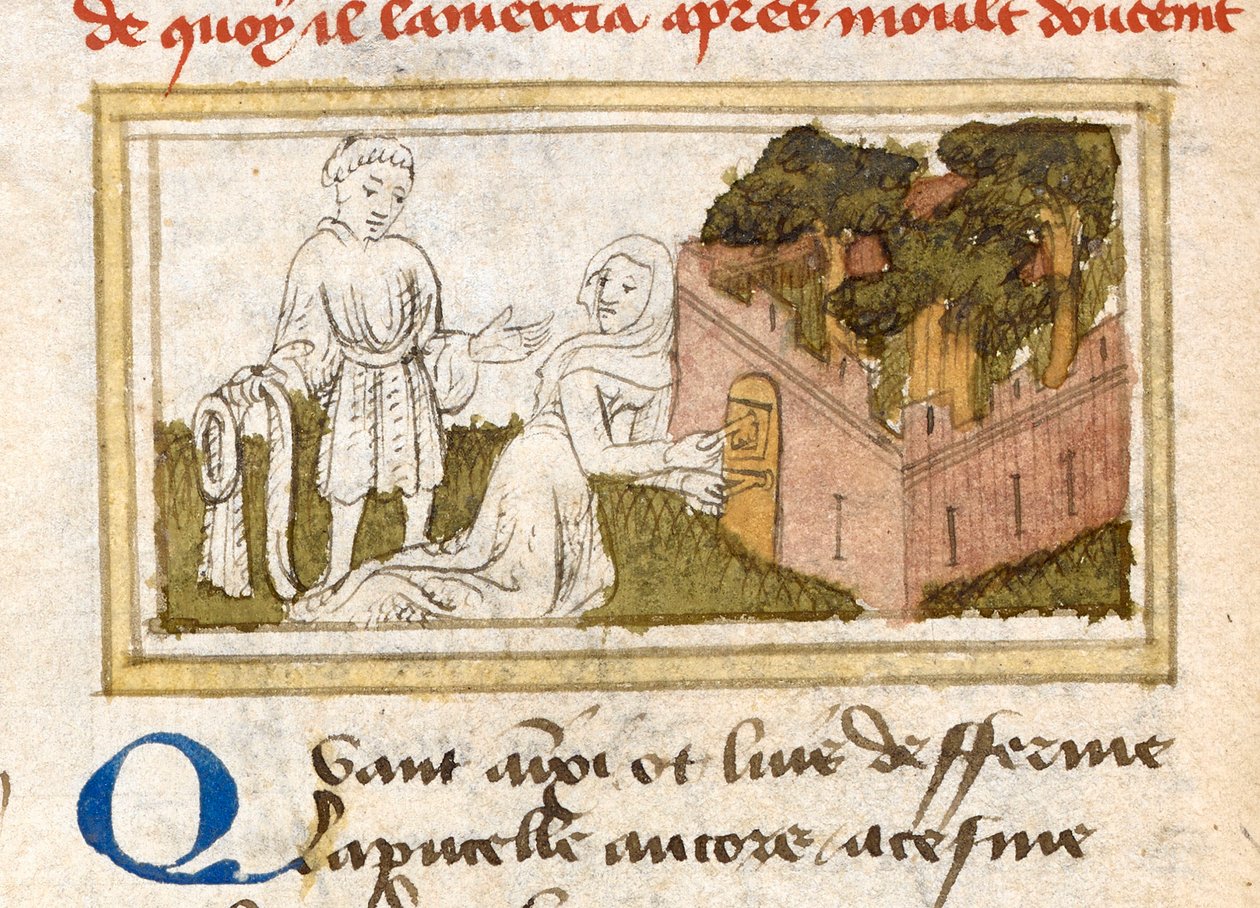 de quoy il lamercia apres moult doucemt
Quant ainsi ot luis desfferme
La pucelle ancore acesme